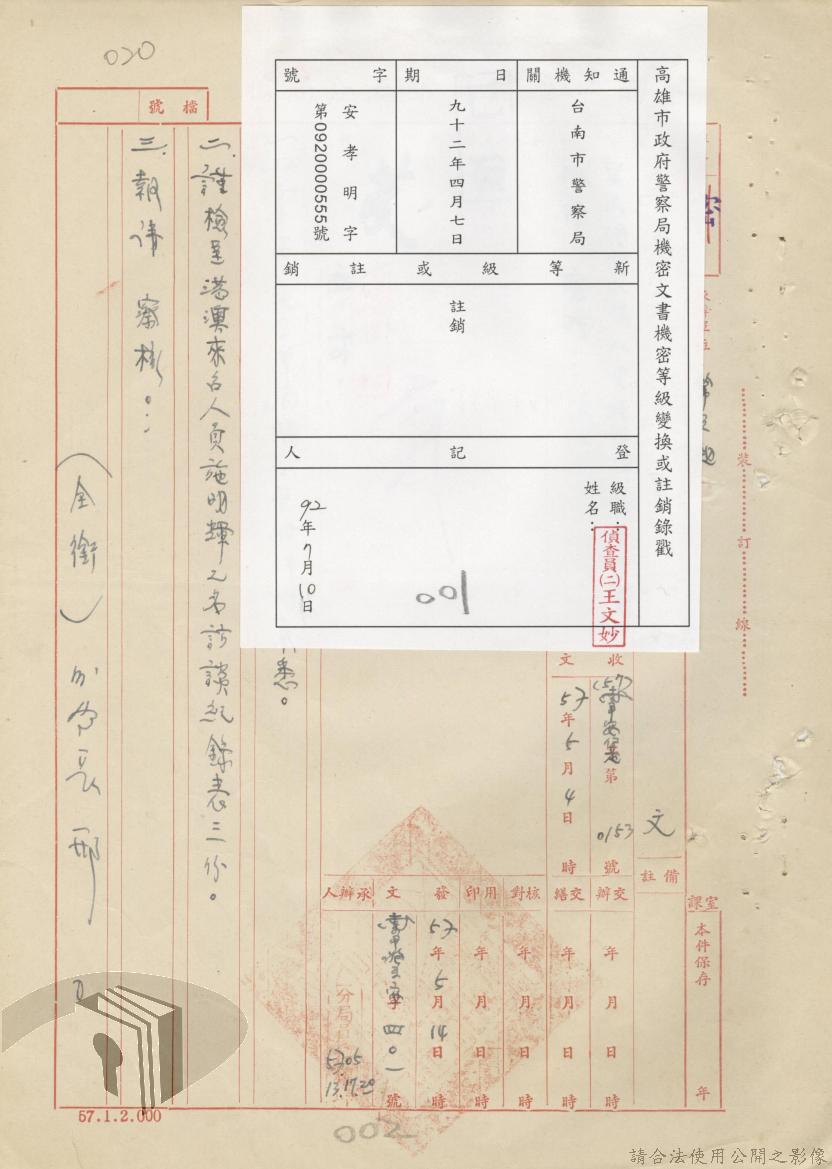 020
高雄市政府警察局機密文書機密等級變換或註銷錄戳
通知機關
台南市警察局
日期
九十二年四月七日
字號
安孝明字
第0920000555號
新等級或註銷
註銷
登記人
級職：
姓名：
偵查員(二)王文妙
92年7月10日
001
檔號
密
裝訂線
悉。
二、謹檢呈港澳來台人員施明輝乙名訪談紀錄表三份。
三、報請 察核。
(全銜)分局長邢
收文
(57)
第0153號
57年5月4日時
備註
文
交辦
年月日時
交繕
年月日時
核對
年月日時
用印
年月日時
發文
57年5月14日時
字四〇一號
承辦人
分局
5705
13.1720
課室
本件保存
年
57.1.2.000
002
請合法使用公開之影像